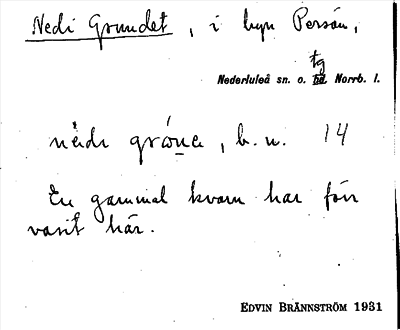 Nedi Grundet, i byn Persön,
tg
Nederluleå sn. o. hd. Norrb. l.
nèdi gróna, b. n. 14
En gammal kvarn har förr
varit här.
EDVIN BRÄNNSTRÖM 1931